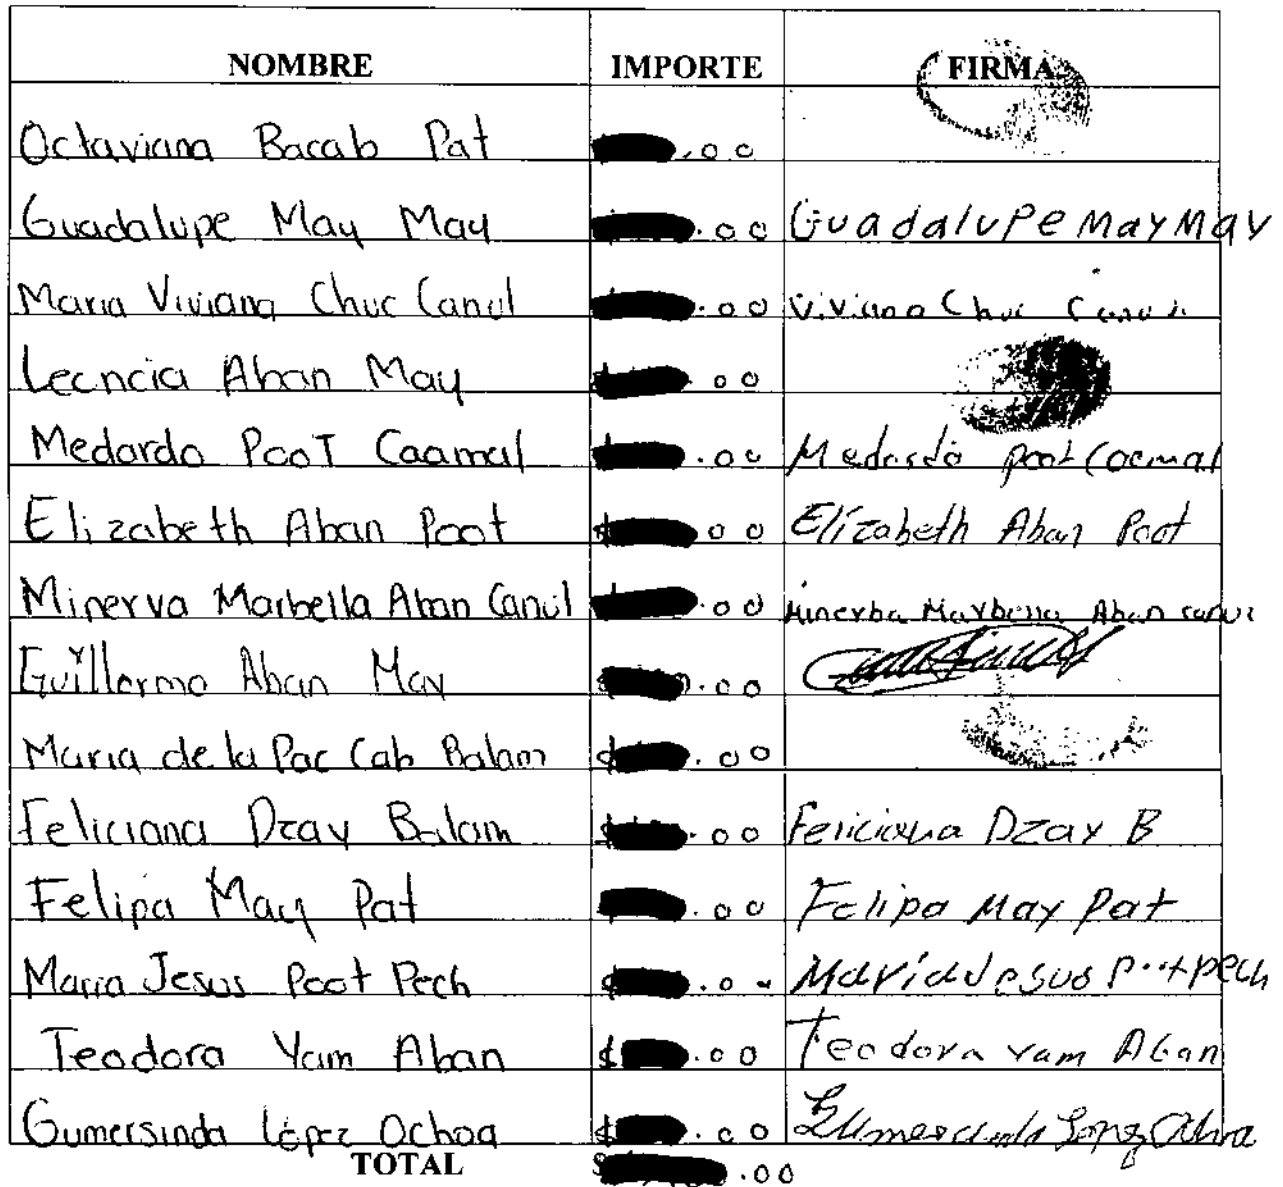 NOMBRE IMPORTE FIRMA
Octaviana Bacab Pat .00
Guadalupe May May .00 Guadalupe May May
Maria Viviana Chuc Canul .00 Viviana Chuc Canul
Leoncia Aban May .00
Medardo Poot Caamal .00 Medardo poot Caamal
Elizabeth Aban Poot $ .00 Elizabeth Aban Poot
Minerva Marbella Aban Canul $ .00 Minerba Marbella Aban canul
Guillermo Aban May $ .00
Maria de la Pac Cab Balam $ .00
Feliciana Dzay Balam $ .00 Feliciana Dzay B
Felipa May Pat .00 Felipa May Pat
Maria Jesus Poot Pech $ .0 Maria Jesus Poot pech
Teodora Yam Aban $ .00 Teodora Yam Aban
Gumersinda López Ochoa $ .00 Gumersinda Lopez Ochoa
TOTAL $ .00